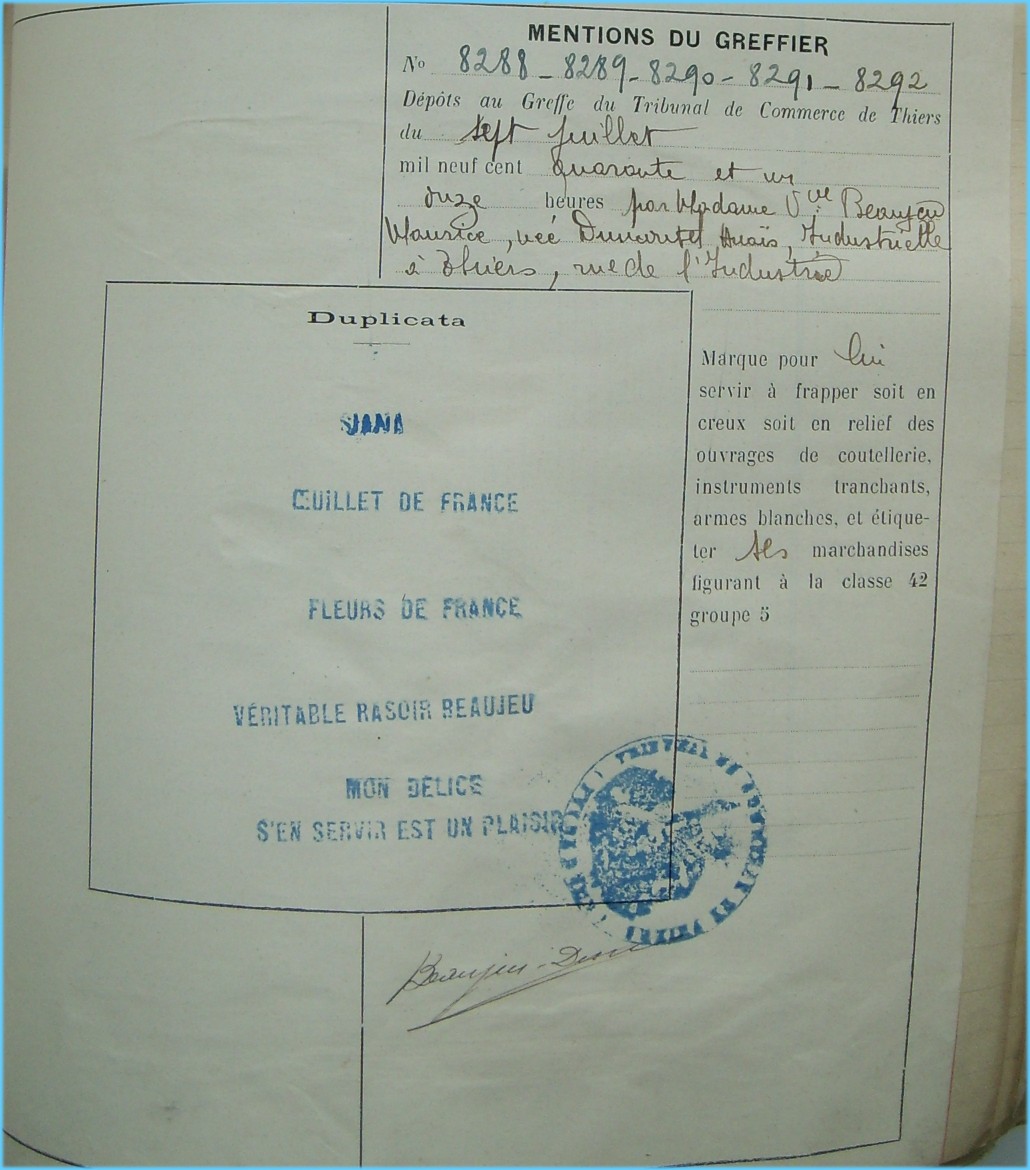 MENTIONS DU GREFFIER
No 8288 - 8289 - 8290 - 8291 - 8292
Dépôts au Greffe du Tribunal de Commerce de Thiers
du sept juillet
mil neuf cent quarante et un
onze heures par Madame Vve Beaujeu
Maurice, née Anaïs, Industrielle
à Thiers, rue de l'Industrie
Duplicata
JANA
ŒUILLET DE FRANCE
FLEURS DE FRANCE
VÉRITABLE RASOIR BEAUJEU
MON DÉLICE
S'EN SERVIR EST UN PLAISIR
Marque pour lui
servir à frapper soit en
creux soit en relief des
ouvrages de coutellerie,
instruments tranchants,
armes blanches, et étique-
ter ses marchandises
figurant à la classe 42
groupe 5
TRIBUNAL DE COMMERCE DE THIERS
Beaujeu